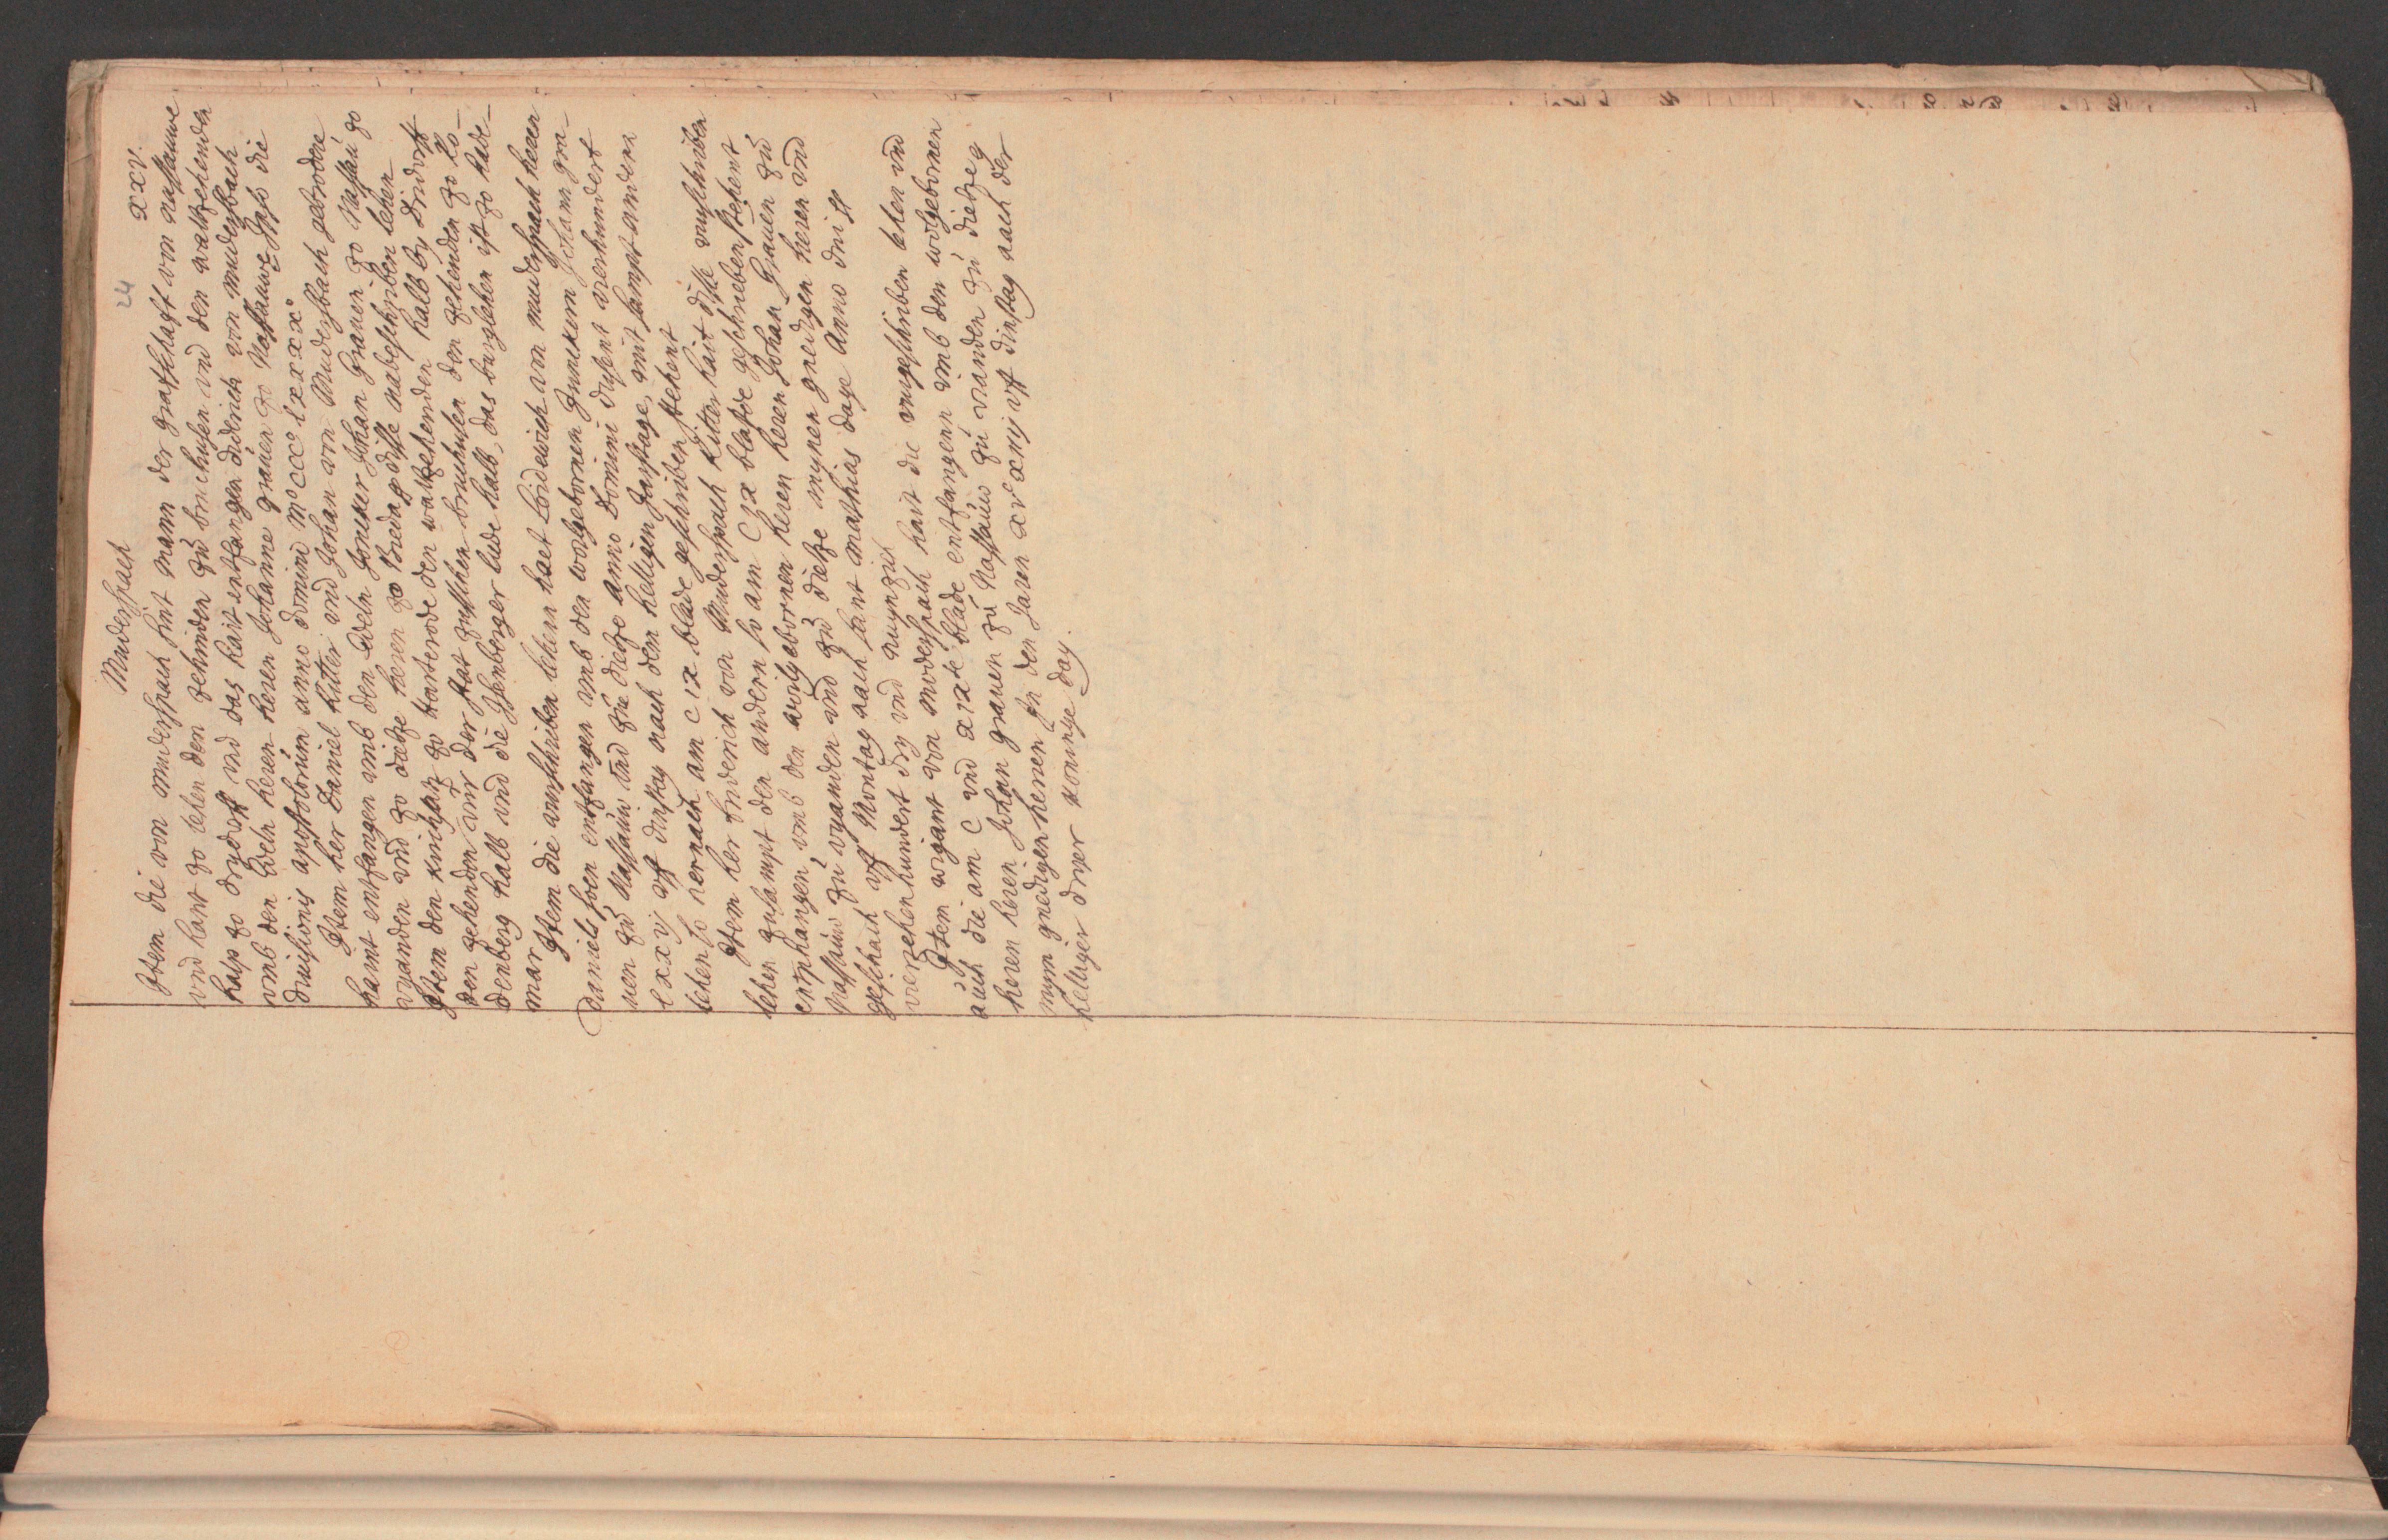 24
Muderspach xxv.
Item die von muderspach sint mann der graffschafft von nassauwe
vnd hant zo lehen den zehinden zu bruchusen vnd den waltzehenden
halp zo drydorff vnd das hait entfangen diderich von muderspach
vmb den Edeln heren heren Johanne grauen zo Nassauwe Ipso die
diuisionis apostolorum anno domini mo ccco lxxxxo
Item her Daniel Ritter vnd Johan von Muderspach gebrodere
haint entfangen vmb den Edeln Joncker Johan Grauen zo Nassau zo
vyanden vnd zo dietze heren zo Breda disse nabeschriben lehen
Item den zehenden zo Harterode den waltzehenden halb by Dridorff
den zehenden vur der stat zusschen bruchusen den zehenden zo Ro-
denberg halb vnd die Isenberger lude halb, das burglehen ist zo hade-
mar Item die vurschriben lehenn haet Lodewich von muderspach heren
Daniels soen entfangen vmb den woilgebornen Junckern Johann gra-
uen zu Nassauw vnd zu dietze anno domini dusent vierhundert
lxxvj vff dinstag nach den heiligen Jarstage, mit sampt andern
lehen so hernach am cix blade geschriben stehent
Item her friderich von Muderspach Ritter hait disse vurschriben
lehen zusampt den andern so am Cix blade geschrieben stehent
entphangen, vmb den woilgebornen heren heren Johan Grauen zu
Nassauw zu vyanden vnd zu dietze mynen gnedigen heren vnd
geschach vff Montag nach sant mathias dage Anno dni
vierzehenhundert dry vnd nuynzich
Item wigant von moderspach hait die vurgeschriben lehen vnd
auch die am C vnd xixte blade entfangenn vmb den wolgebornen
heren heren Johan grauen zu Nassauw zu vianden zu dietze
mym gnedigen herren In den Jaren xvc xviij vff dinstag nach der
helliger dryer konnyge dag.